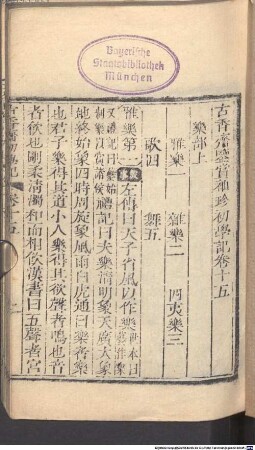 Bayerische
Staatsbibliothek
München
古香齋鑒賞袖珍初學記卷十五
樂部上
雅樂一 雜樂二 四夷樂三
歌四 舞五
雅樂第一 叙事 左傳曰天子省風以作樂
禮記曰夫樂清明象天廣大象
地終始象四時周旋象風雨白虎通曰樂者樂
也君子樂得其道小人樂得其欲聲者鳴也音
者飲也剛柔清濁和而相飲漢書曰五聲者宮